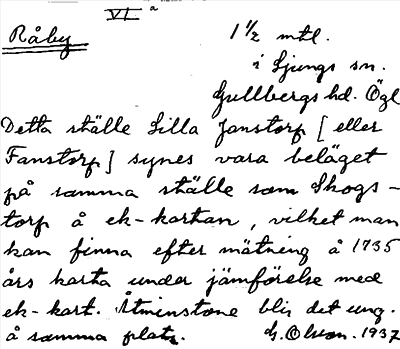 VI a
Råby 1 1/2 mtl.
i Ljungs sn.
Gullbergs hd. Ögl
Detta ställe Lilla Janstorp [eller
Fanstorp] synes vara beläget
på samma ställe som Skogs-
torp å ek-kartan, vilket man
kan finna efter mätning å 1735
års karta under jämförelse med
ek-kart. Åtminstone blir det ung.
å samma plats. G. Olsson. 1937